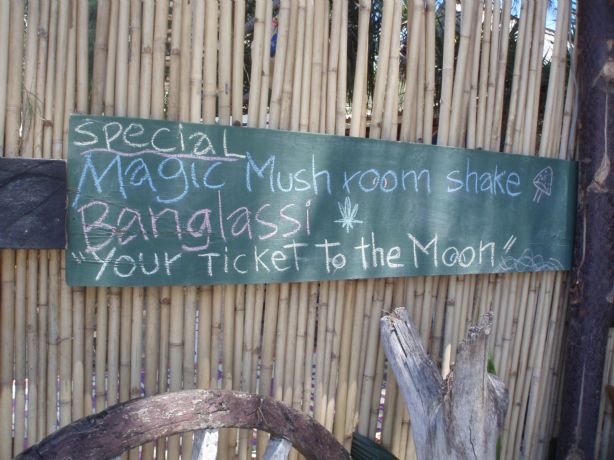 Special
Magic Mushroom shake
Banglassi
"Your Ticket To the Moon"